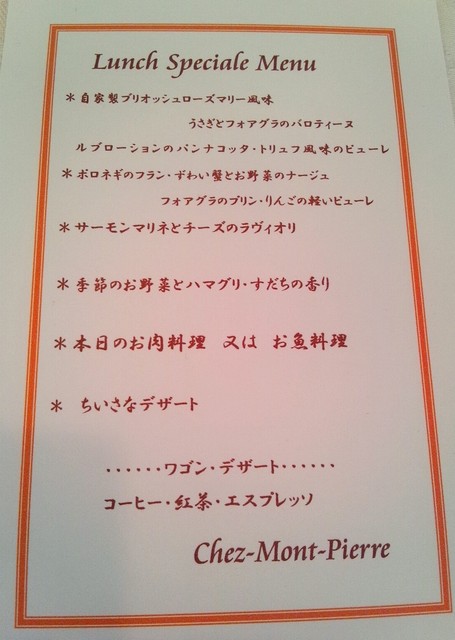 Lunch Speciale Menu
＊自家製ブリオッシュローズマリー風味
うさぎとフォアグラのバロティーヌ
ルブローションのパンナコッタ・トリュフ風味のピューレ
＊ポロネギのフラン・ずわい蟹とお野菜のナージュ
フォアグラのプリン・りんごの軽いピューレ
＊サーモンマリネとチーズのラヴィオリ
＊季節のお野菜とハマグリ・すだちの香り
＊本日のお肉料理 又は お魚料理
＊ ちいさなデザート
・・・・・・ワゴン・デザート・・・・・・
コーヒー・紅茶・エスプレッソ
Chez-Mont-Pierre